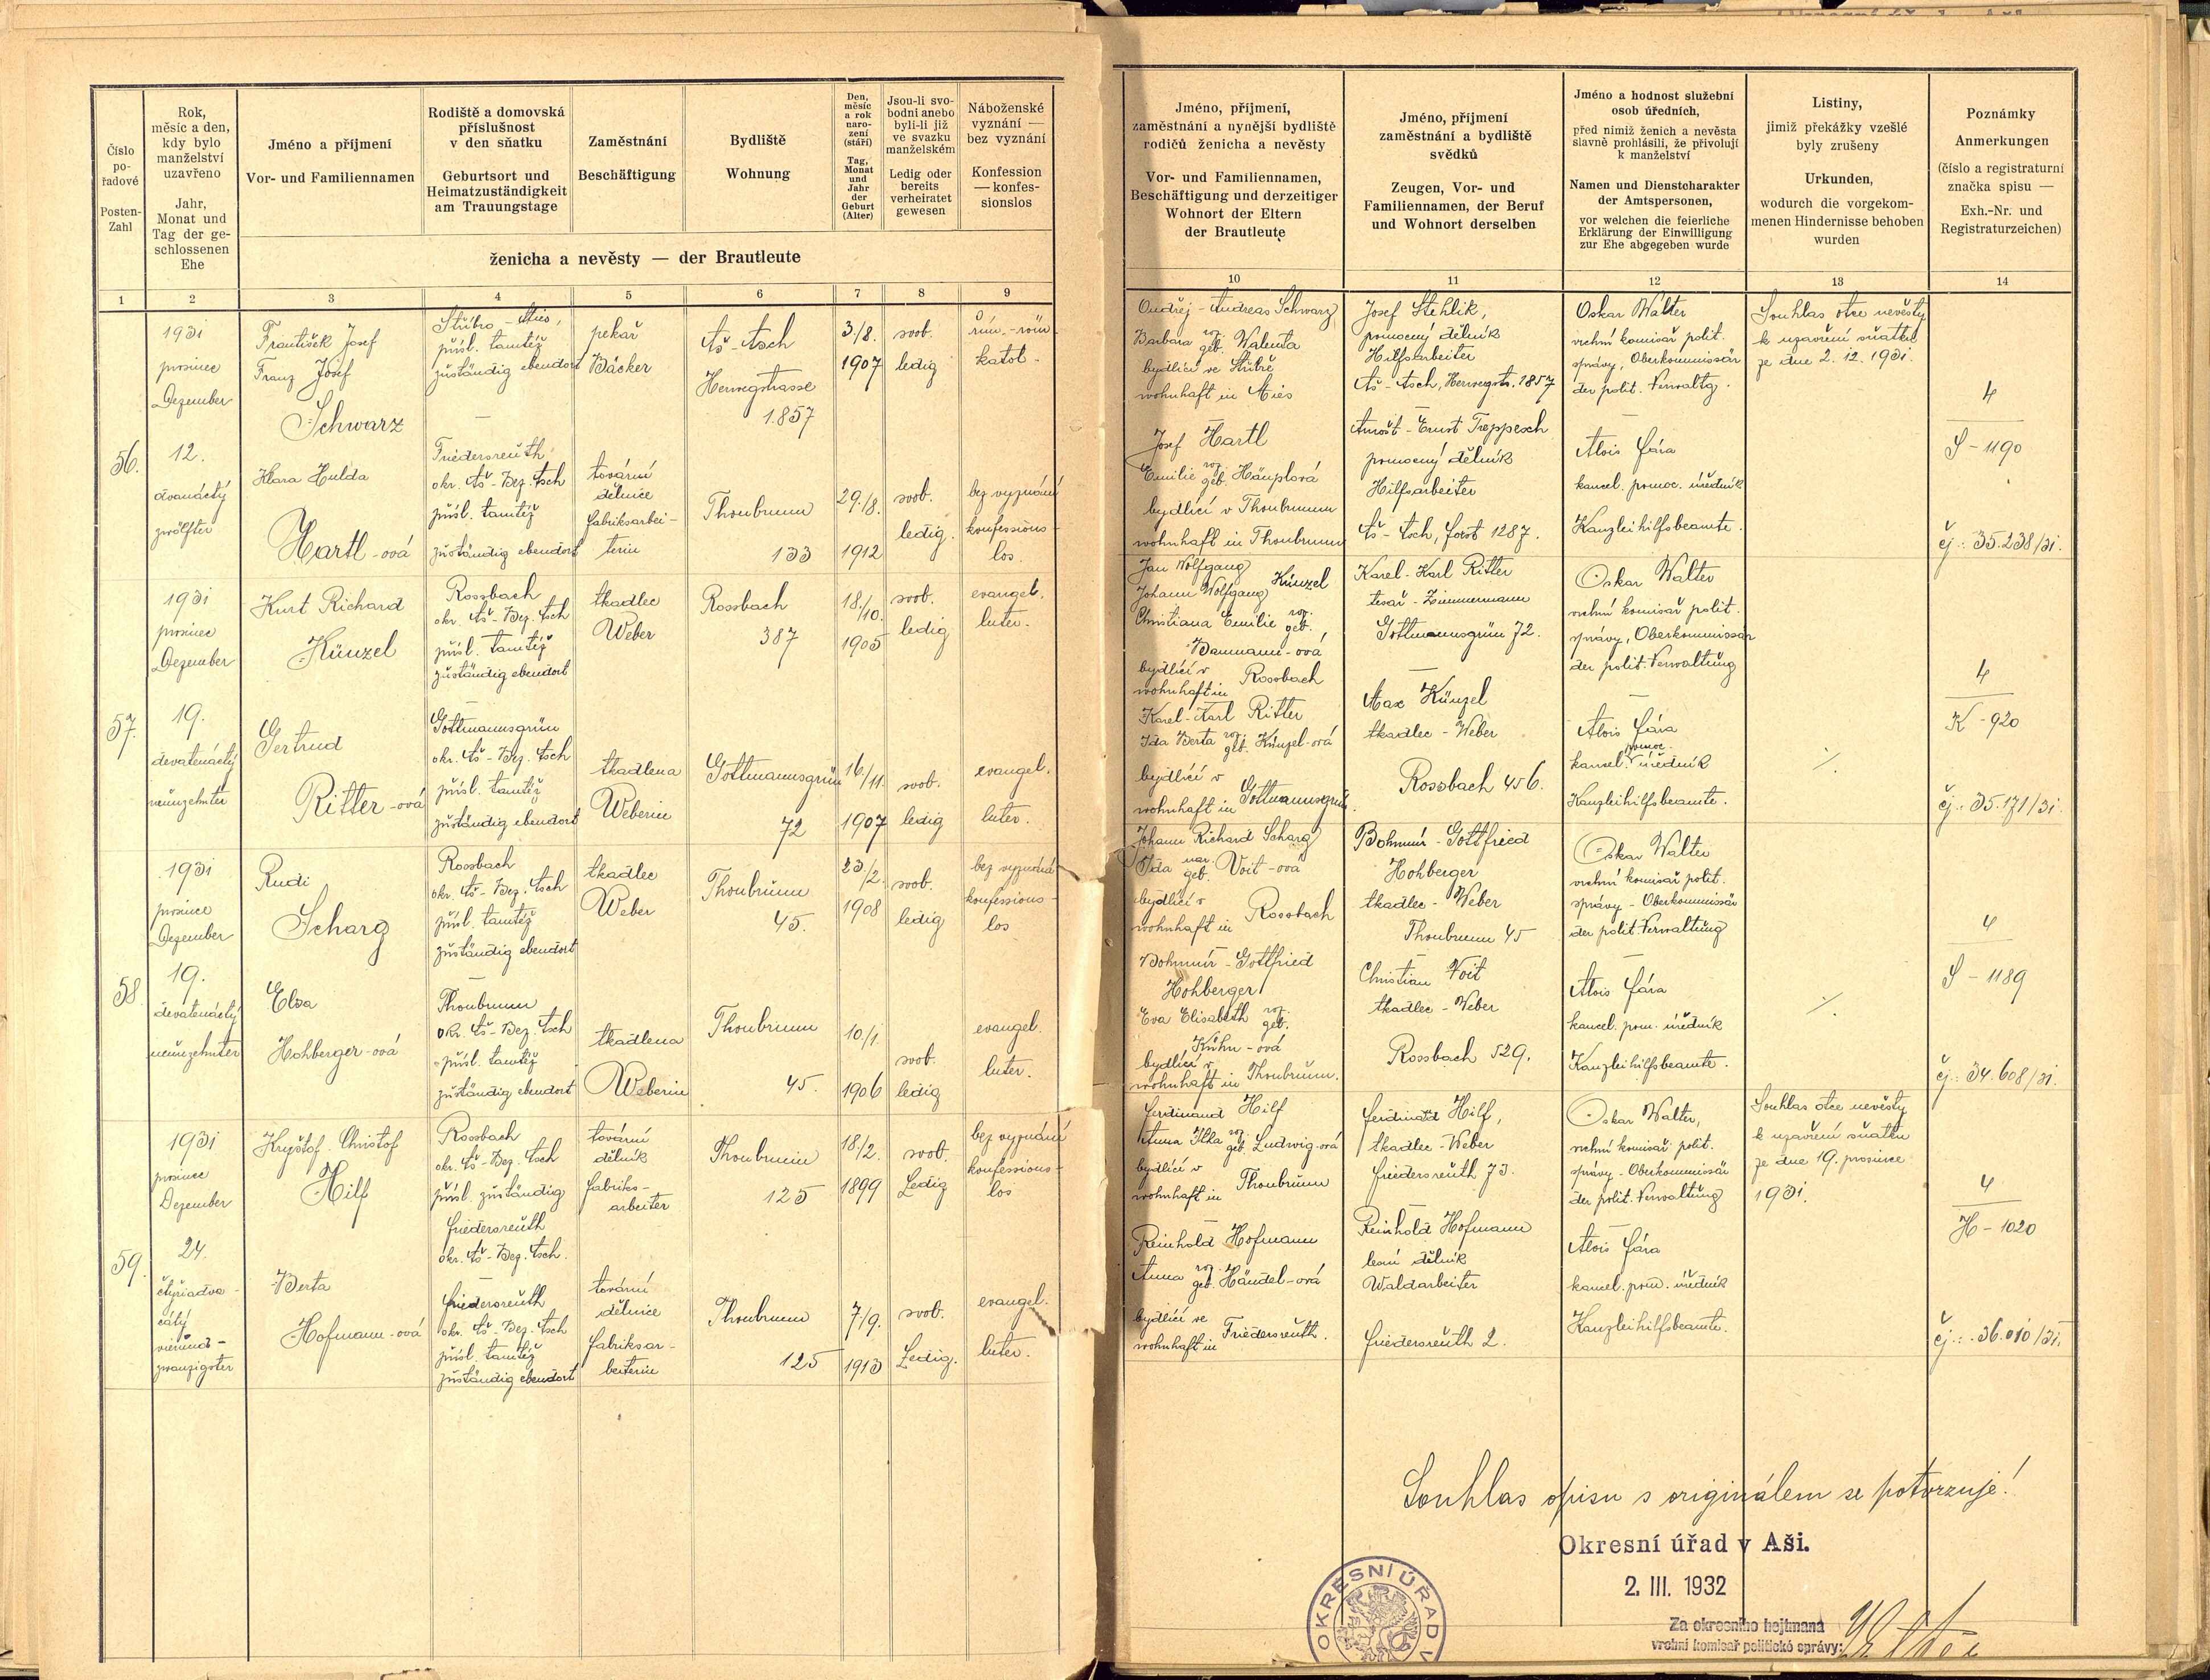 Číslo
po-
řadové
Posten-
Zahl
Rok,
měsíc a den,
kdy bylo
manželství
uzavřeno
Jahr,
Monat und
Tag der ge-
schlossenen
Ehe
Jméno a příjmení
Vor- und Familiennamen
Rodiště a domovská
příslušnost
v den sňatku
Geburtsort und
Heimatzuständigkeit
am Trauungstage
Zaměstnání
Beschäftigung
Bydliště
Wohnung
Den,
měsíc
a rok
naro-
zení
(stáří)
Tag,
Monat
und
Jahr
der
Geburt
(Alter)
Jsou-li svo-
bodni anebo
byli-li již
ve svazku
manželském
Ledig oder
bereits
verheiratet
gewesen
Náboženské
vyznání —
bez vyznání
Konfession
— konfes-
sionslos
ženicha a nevěsty — der Brautleute
1 2 3 4 5 6 7 8 9
56.
1931
prosinec
Dezember
12.
dvanáctý
zwölfter
František Josef
Franz Josef
Schwarz
Klara Hulda
Hartl-ová
Stříbro - Mies,
přísl. tamtéž
zuständig ebendort
—
Friedersreuth
okr. Aš - Bez. Asch
přísl. tamtéž
zuständig ebendort
pekař
Bäcker
tovární
dělnice
Fabriksarbei-
terin
Aš - Asch
Herwegstrasse
1857
Thonbrunn
133
3./8.
1907
29./8.
1912
svob.
ledig
svob.
ledig.
řím. - röm.
katol.
bez vyznání
konfessions-
los
57.
1931
prosinec
Dezember
19.
devatenáctý
neunzehnter
Kurt Richard
Künzel
Gertrud
Ritter-ová
Rossbach
okr. Aš - Bez. Asch
přísl. tamtéž
zuständig ebendort
—
Gottmannsgrün
okr. Aš - Bez. Asch
přísl. tamtéž
zuständig ebendort
tkadlec
Weber
tkadlena
Weberin
Rossbach
387
Gottmannsgrün
72
18./10.
1905
16./11.
1907
svob.
ledig
svob.
ledig
evangel.
luter.
evangel.
luter.
58
1931
prosinec
Dezember
19.
devatenáctý
neunzehnter
Rudi
Scharg
Elsa
Hohberger-ová
Rossbach
okr. Aš - Bez. Asch
přísl. tamtéž
zuständig ebendort
—
Thonbrunn
okr. Aš - Bez. Asch
přísl. tamtéž
zuständig ebendort
tkadlec
Weber
tkadlena
Weberin
Thonbrunn
45.
Thonbrunn
45.
23/2.
1908
10/1.
1906
svob.
ledig
svob.
ledig
bez vyznání
konfessions-
los
evangel.
luter.
59.
1931
prosinec
Dezember
24.
čtyřiadva-
cátý
vierund-
zwanzigster
Kryštof Christof
Hilf
Berta
Hofmann-ová
Rossbach
okr. Aš - Bez. Asch
přísl. zuständig
Friedersreuth
okr. Aš - Bez. Asch.
—
Friedersreuth
okr. Aš - Bez. Asch
přísl. tamtéž
zuständig ebendort
tovární
dělník
Fabriks-
arbeiter
tovární
dělnice
Fabriksar-
beiterin
Thonbrunn
125
Thonbrunn
125
18/2.
1899
7/9.
1913
svob.
Ledig
svob.
Ledig.
bez vyznání
konfessions-
los
evangel.
luter.
Jméno, příjmení,
zaměstnání a nynější bydliště
rodičů ženicha a nevěsty
Vor- und Familiennamen,
Beschäftigung und derzeitiger
Wohnort der Eltern
der Brautleute
Jméno, příjmení
zaměstnání a bydliště
svědků
Zeugen, Vor- und
Familiennamen, der Beruf
und Wohnort derselben
Jméno a hodnost služební
osob úředních,
před nimiž ženich a nevěsta
slavně prohlásili, že přivolují
k manželství
Namen und Dienstcharakter
der Amtspersonen,
vor welchen die feierliche
Erklärung der Einwilligung
zur Ehe abgegeben wurde
Listiny,
jimiž překážky vzešlé
byly zrušeny
Urkunden,
wodurch die vorgekom-
menen Hindernisse behoben
wurden
Poznámky
Anmerkungen
(číslo a registraturní
značka spisu —
Exh.-Nr. und
Registraturzeichen)
10 11 12 13 14
Ondřej - Andreas Schwarz
Barbara roz. geb. Walenta
bydlící ve Stříbře
wohnhaft in Mies
Josef Hartl
Emilie roz. geb. Häuplová
bydlící v Thonbrunn
wohnhaft in Thonbrunn
Josef Stehlik,
pomocný dělník
Hilfsarbeiter
Aš - Asch, Herwegstr. 1857
—
Arnošt - Ernst Treppesch
pomocný dělník
Hilfsarbeiter
Aš - Asch, Forst 1287.
Oskar Walter
vrchní komisař polit.
správy, Oberkommissär
der polit. Verwaltg.
—
Alois Fára
kancel. pomoc. úředník
Kanzleihilfsbeamte.
Souhlas otce nevěsty
k uzavření sňatku
ze dne 2. 12. 1931.
4
S - 1190
čj.: 35.238/31.
Jan Wolfgang
Johann Wolfgang Künzel
Christiana Emilie roz. geb.
Baumann-ová
bydlící v
wohnhaft in Rossbach
Karel - Karl Ritter
Ida Berta roz. geb. Künzel-ová
bydlící v
wohnhaft in Gottmannsgrün.
Karel - Karl Ritter
tesař - Zimmermann
Gottmannsgrün 72.
—
Max Künzel
tkadlec - Weber
Rossbach 456.
Oskar Walter
vrchní komisař polit.
správy, Oberkommissär
der polit. Verwaltung
—
Alois Fára
pomoc.
kancel. úředník
Kanzleihilfsbeamte.
./.
4
K - 920
čj.: 35.171/31.
Johann Richard Scharg
Ida nar. geb. Voit-ová
bydlící v
wohnhaft in Rossbach
Bohumír - Gottfried
Hohberger
Eva Elisabeth roz. geb.
Kühn-ová
bydlící v
wohnhaft in Thonbrunn.
Bohumír - Gottfried
Hohberger
tkadlec - Weber
Thonbrunn 45
—
Christian Voit
tkadlec - Weber
Rossbach 529.
Oskar Walter
vrchní komisař polit.
správy - Oberkommissär
der polit. Verwaltung
—
Alois Fára
kancel. pom. úředník
Kanzleihilfsbeamte.
./.
4
S - 1189
čj.: 34.608/31.
Ferdinand Hilf
Anna roz. geb. Ludwig-ová
bydlící v
wohnhaft in Thonbrunn
—
Reinhold Hofmann
Anna roz. geb. Händel-ová
bydlící ve
wohnhaft in Friedersreuth.
Ferdinand Hilf,
tkadlec - Weber
Friedersreuth 73.
Reinhold Hofmann
lesní dělník
Waldarbeiter
Friedersreuth 2.
Oskar Walter,
vrchní komisař polit.
správy - Oberkommissär
der polit. Verwaltung
—
Alois Fára
kancel. pom. úředník
Kanzleihilfsbeamte.
Souhlas otce nevěsty
k uzavření sňatku
ze dne 19. prosince
1931.
4
H - 1020
čj.: 36.010/31.
Souhlas opisu s originálem se potvrzuje!
Okresní úřad v Aši.
2. III. 1932
Za okresního hejtmana
vrchní komisař politické správy:
OKRESNÍ ÚŘAD V